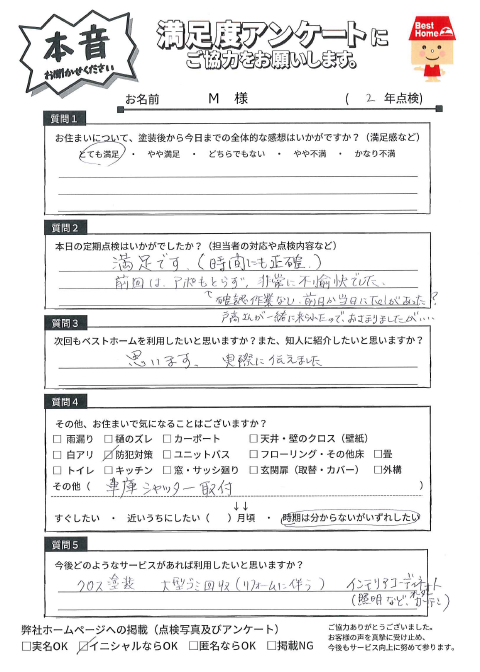 本音
お聞かせください
満足度アンケートに
ご協力をお願いします。
Best Home
お名前 M 様 ( 2 年点検)
質問1
お住まいについて、塗装後から今日までの全体的な感想はいかがですか？（満足感など）
とても満足 ・ やや満足 ・ どちらでもない ・ やや不満 ・ かなり不満
質問2
本日の定期点検はいかがでしたか？（担当者の対応や点検内容など）
満足です。(時間にも正確。)
前回は、アポもとらず、非常に不愉快でした。
確認作業なし、前日か当日にTelがあった？
戸高さんが一緒に来られたので、おさまりましたが…
質問3
次回もベストホームを利用したいと思いますか？また、知人に紹介したいと思いますか？
思います。 実際に伝えました
質問4
その他、お住まいで気になることはございますか？
□ 雨漏り □ 樋のズレ □ カーポート □ 天井・壁のクロス（壁紙）
□ 白アリ ☑ 防犯対策 □ ユニットバス □ フローリング・その他床 □ 畳
□ トイレ □ キッチン □ 窓・サッシ廻り □ 玄関扉（取替・カバー） □ 外構
その他（ 車庫シャッター取付 ）
↓↓
すぐしたい ・ 近いうちにしたい（ ）月頃 ・ 時期は分からないがいずれしたい
質問5
今後どのようなサービスがあれば利用したいと思いますか？
クロス塗装 大型ゴミ回収(リフォームに伴う) インテリアコーディネート
(照明など、オーダーカーテン)
弊社ホームページへの掲載（点検写真及びアンケート）
□実名OK ☑イニシャルならOK □匿名ならOK □掲載NG
ご協力ありがとうございました。
お客様の声を真摯に受け止め、
今後もサービス向上に努めて参ります。